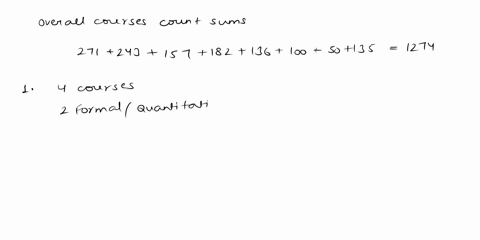 overall courses count sums
271 + 243 + 157 + 182 + 136 + 100 + 50 + 135 = 1274
1. 4 courses
2 Formal / Quantitati